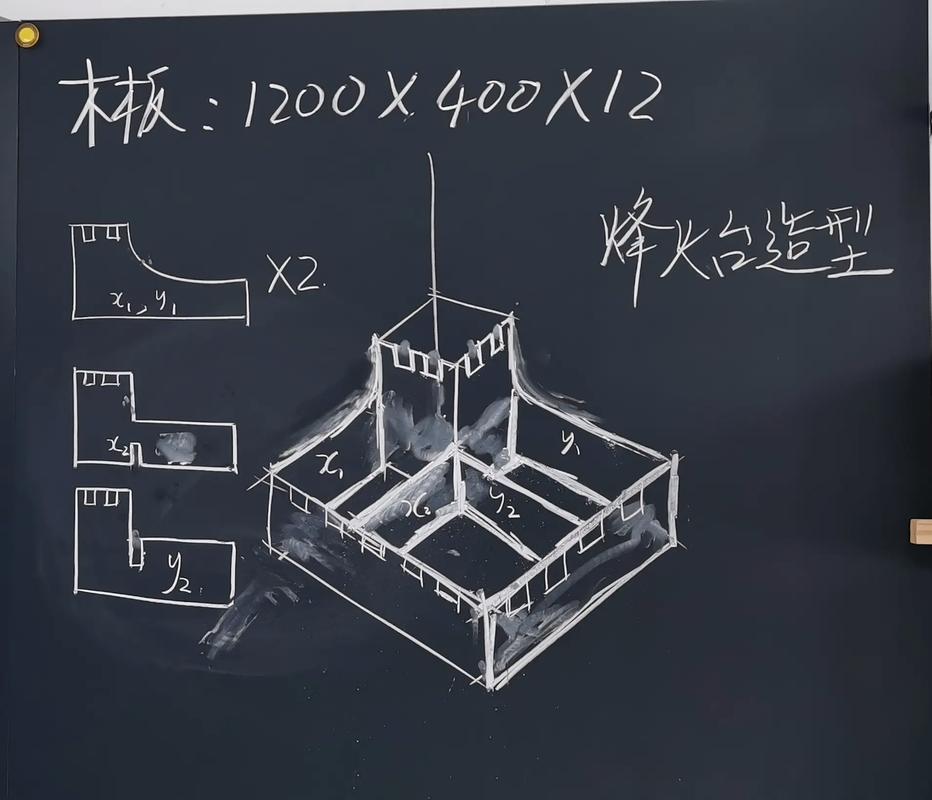 木板：1200X400X12
烽火台造型
x₁, y₁
X2.
x₂
y₂.
x₁
y₁
x₂
y₂